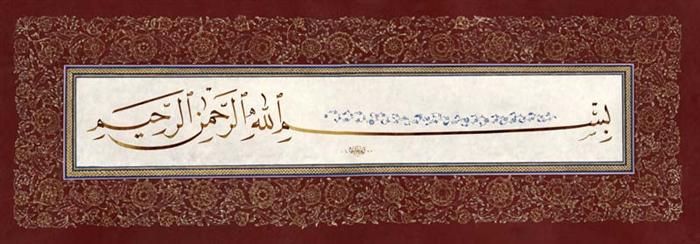 بِسْمِ ٱللهِ ٱلرَّحْمٰنِ ٱلرَّحِيمِ